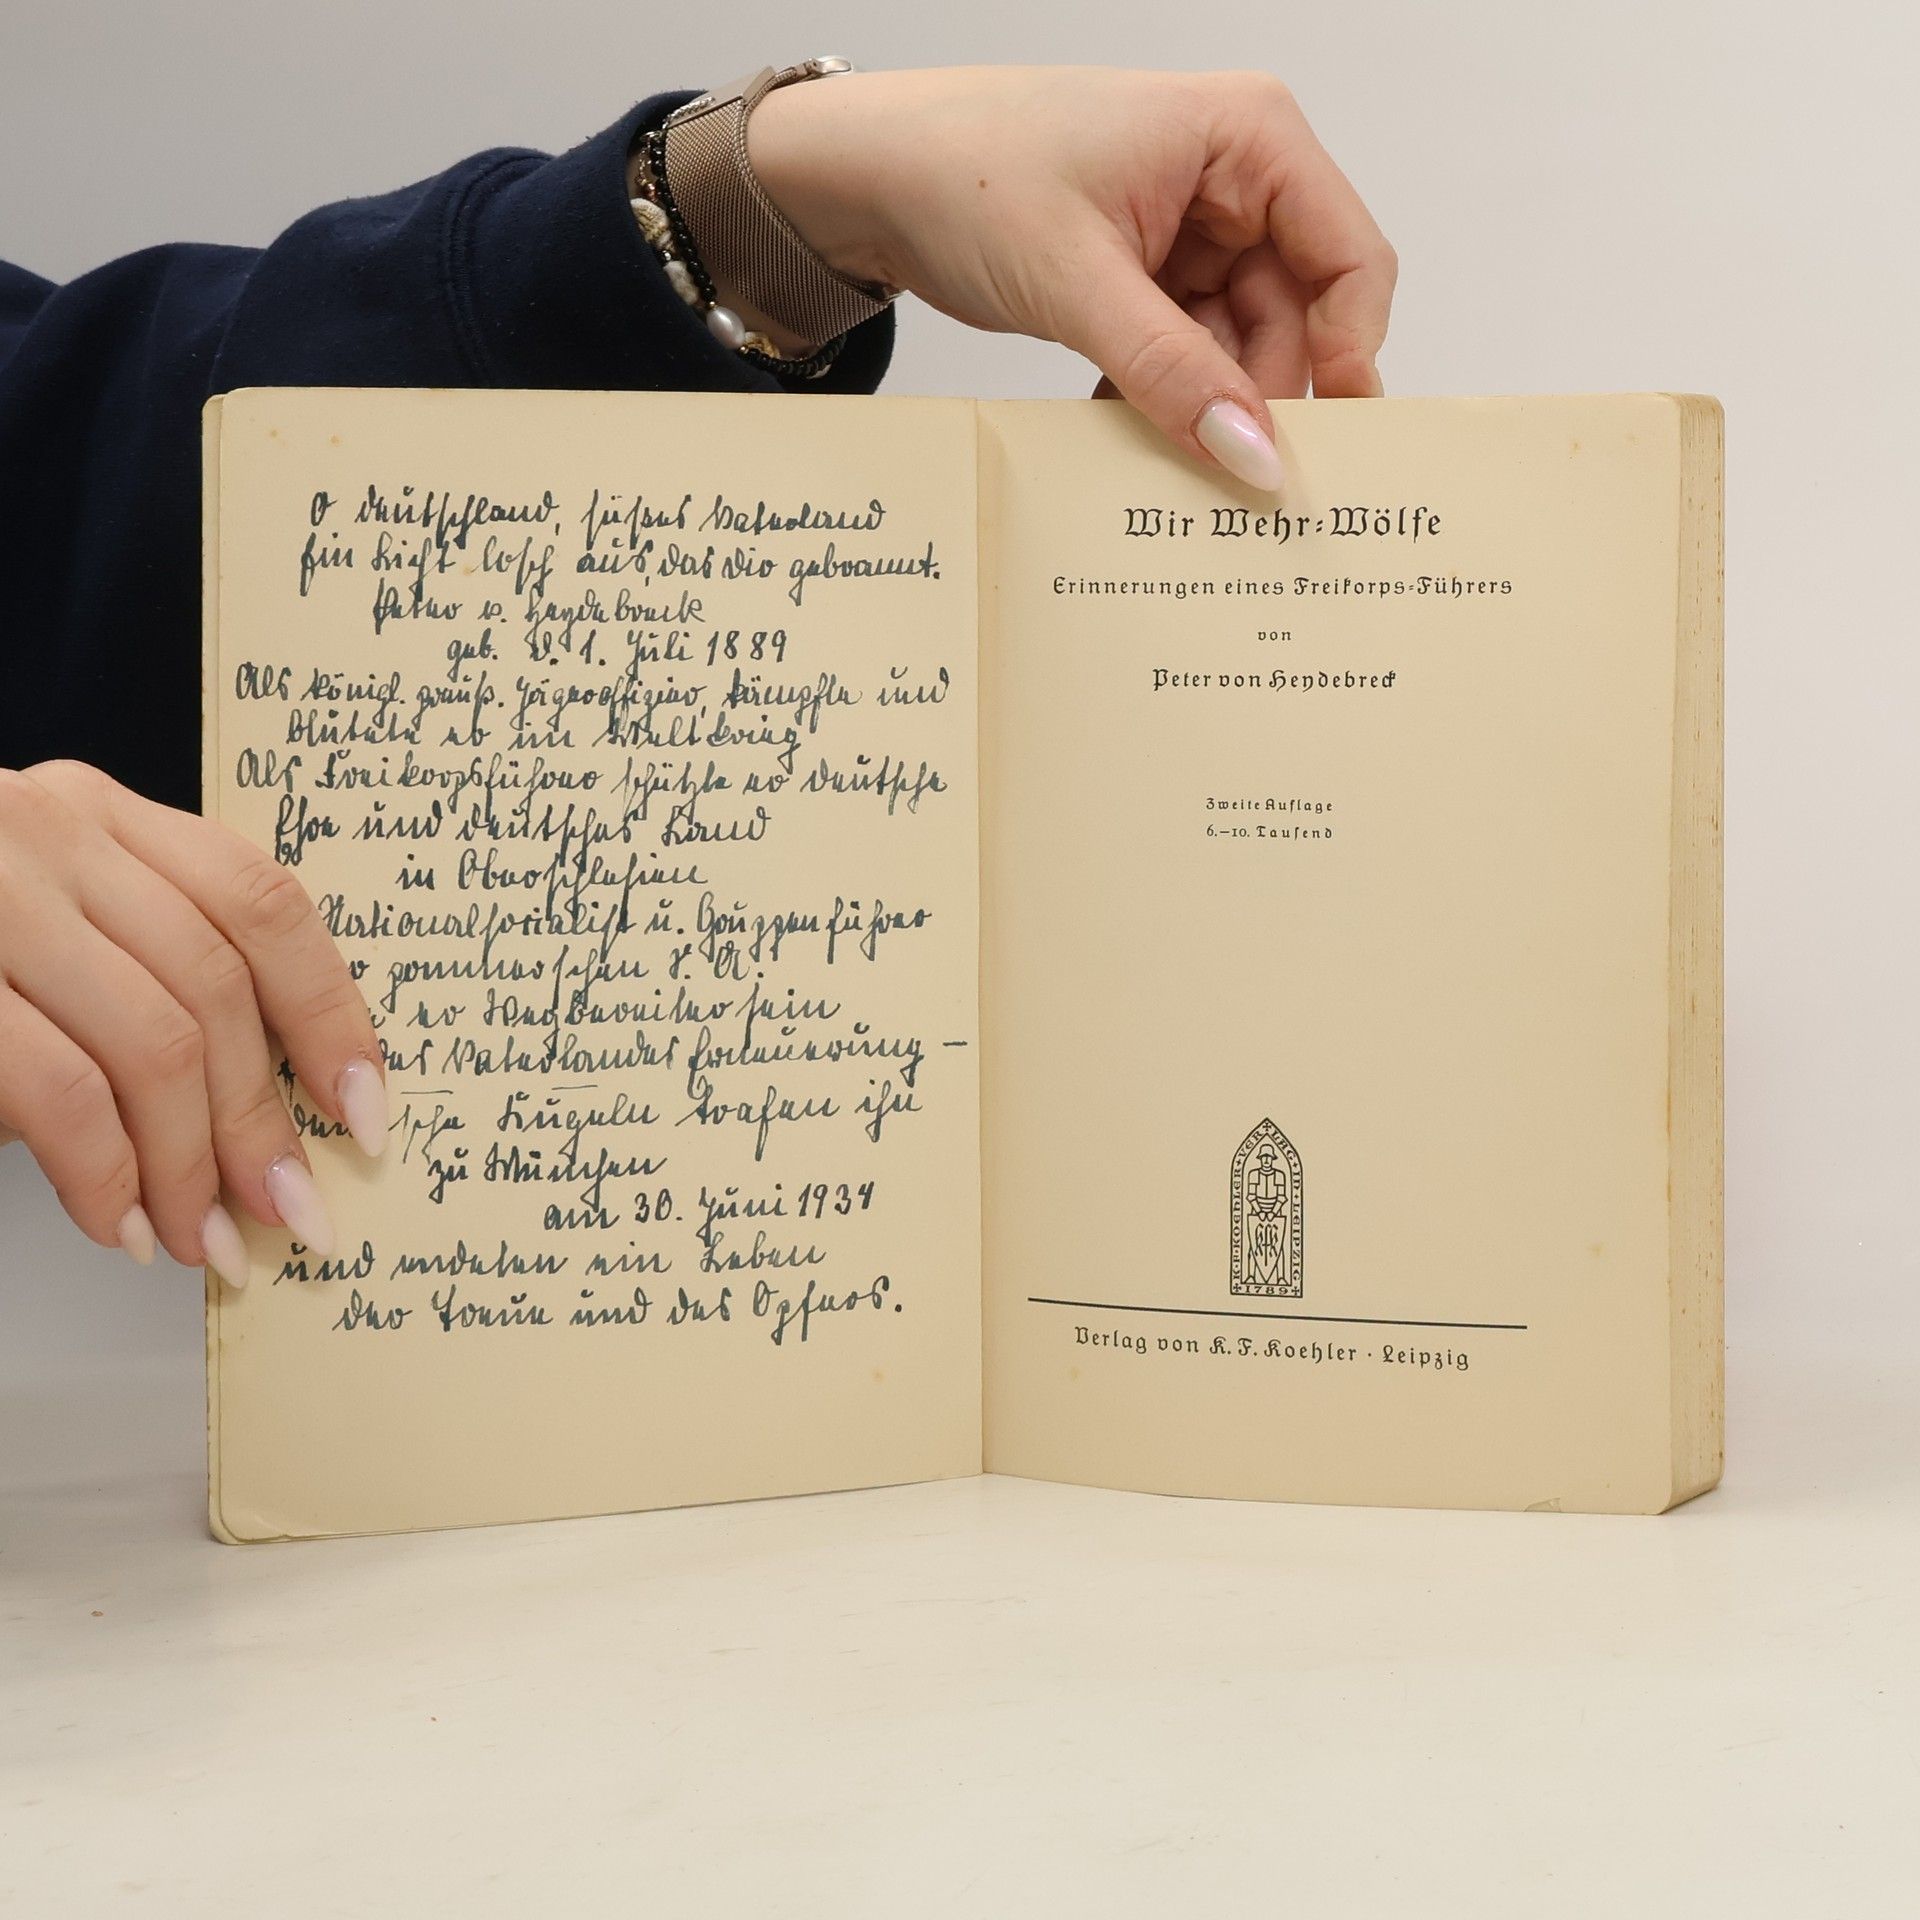 O Deutschland, süßes Vaterland
Ein Licht losch aus, das dir gebrannt.
Peter v. Heydebreck
geb. d. 1. Juli 1889
Als königl. preuß. Jägeroffizier, kämpfte und
blutete er im Weltkrieg
Als Freikorpsführer schützte er deutsche
Ehre und deutsches Land
in Oberschlesien
Nationalsocialist u. Gruppenführer
pommerschen S. A.
er Wegbereiter sein
des Vaterlandes Erneuerung –
Kugeln trafen ihn
zu München
am 30. Juni 1934
und endeten ein Leben
der Treue und des Opfers.
Wir Wehr-Wölfe
Erinnerungen eines Freikorps-Führers
von
Peter von Heydebreck
Zweite Auflage
6.–10. Tausend
K·F·KOEHLER·VERLAG·LEIPZIG
1789
Verlag von K. F. Koehler · Leipzig